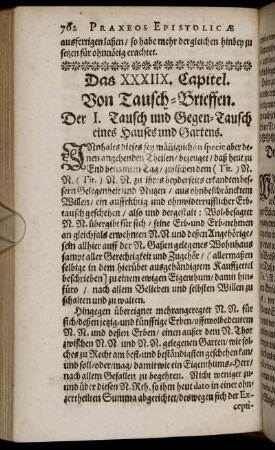 762 PRAXEOS EPISTOLICÆ
ausfertigen laßen / so habe mehr dergleichen hinbey zu
setzen für ohnnötig erachtet.
Das XXXIIX. Capitel.
Von Tausch-Brieffen.
Der I. Tausch und Gegen-Tausch
eines Hauses und Gartens.
INnhaltes dieses sey männiglich / in specie aber de-
nen angehenden Theilen / bezeuget / daß heut zu
End benamten Tag / zwischen dem (Tit.) N. N.
(Tit.) N. N. zu ihrer beyder seits erkandten bes-
sern Gelegenheit und Nutzen / aus ohnbeschränctem
Willen / ein auffrichtig und ohnwiderrufflicher Erb-
tausch geschehen / also und dergestalt: Wol-besagter
N. N. übergibt für sich / seine Erb- und Erb-nehmen
an gleichfals erwehnten N. N. und deßen Angehörige /
sein allhier auff der N. Gaßen gelegenes Wohnhaus
sampt aller Gerechtigkeit und Zugehör / (allermaßen
selbige in dem hierüber ausgehändigten Kauffzettel
beschrieben) zu einem ewigen Eigenthum / damit hin-
füro / nach allem Belieben und selbsten Willen zu
schalten und zu walten.
Hingegen übereignet mehrangeregter N. N. für
sich deßen jetzig- und künfftige Erben / offtwolbedeutem
N. N. und deßen Erben / einen außer dem N. Thor
zwischen N. N. und N. N. gelegenen Garten / wie sol-
ches zu Recht am best- und beständigsten geschehen kan /
und soll / oder / mag / damit wie ein Eigenthums-Herr /
nach allem Gefallen zu begehren. Nicht weniger zu-
und über diesen N. Rth. so ihm heut dato in einer ohn-
zertheilten Summa abgerichtet / des wegen sich der Ex-
cepti-